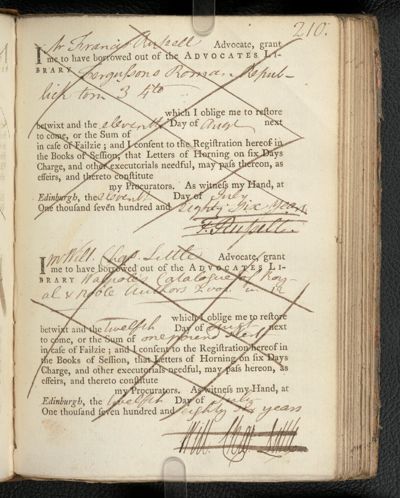 210.
I Mr Francis Russell Advocate, grant
me to have borrowed out of the ADVOCATES LI-
BRARY Fergussons Roman Repub-
lick tom 3 4to
which I oblige me to restore
betwixt and the eleventh Day of Augt next
to come, or the Sum of
in case of Failzie; and I consent to the Registration hereof in
the Books of Session, that Letters of Horning on six Days
Charge, and other executorials needful, may pass hereon, as
effeirs, and thereto constitute
my Procurators. As witness my Hand, at
Edinburgh, the eleventh Day of July
One thousand seven hundred and Eighty Six years
F. Russell
I Mr Will. Chas. Little Advocate, grant
me to have borrowed out of the ADVOCATES LI-
BRARY Walpoles Catalogue of Roy-
al & Noble Authors 2 vol.
which I oblige me to restore
betwixt and the twelfth Day of August next
to come, or the Sum of one pound
in case of Failzie; and I consent to the Registration hereof in
the Books of Session, that Letters of Horning on six Days
Charge, and other executorials needful, may pass hereon, as
effeirs, and thereto constitute
my Procurators. As witness my Hand, at
Edinburgh, the twelfth Day of July
One thousand seven hundred and eighty six years
Will Chas Little